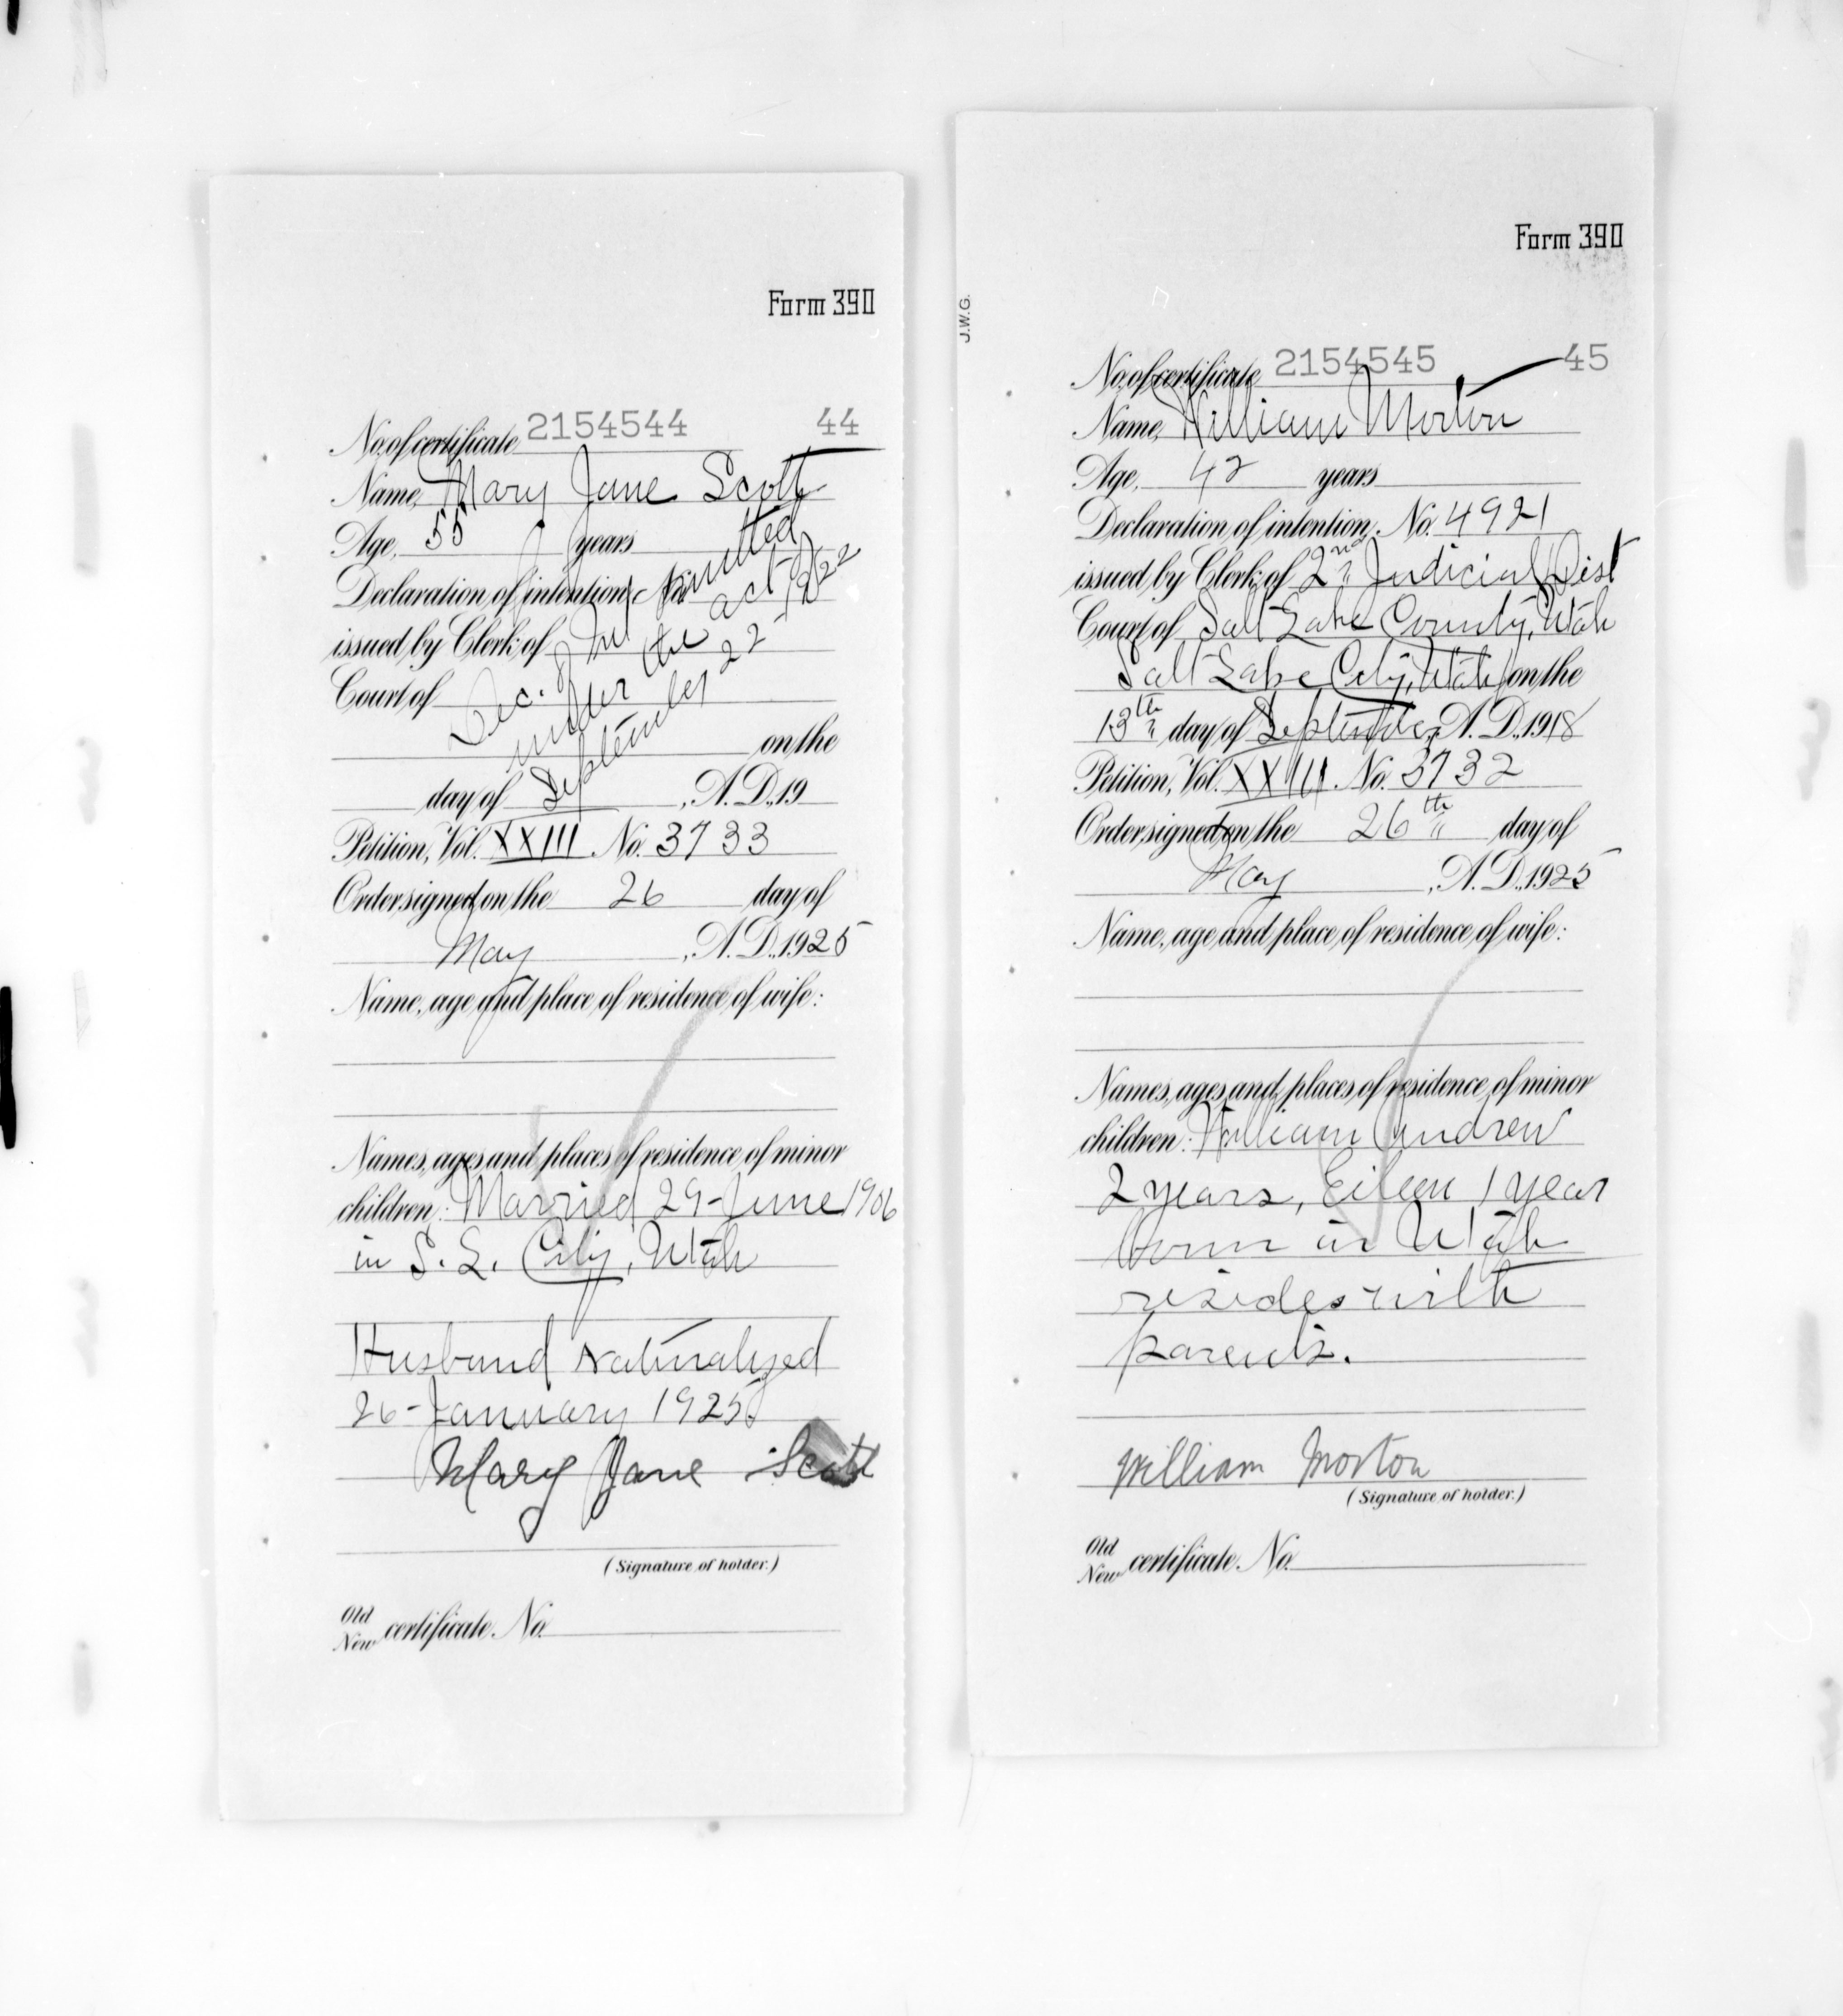 Form 390
No. of certificate 2154544 44
Name, Mary Jane Scott
Age, 55 years
Declaration of intention, No.
issued by Clerk of
Court of
on the
day of , A. D., 19
Dec. of Int. omitted
under the act
September 22 1922
Petition, Vol. XXIII No. 3733
Order signed on the 26 day of
May , A. D., 1925
Name, age and place of residence of wife:
Names, ages and places of residence of minor
children: Married 29-June 1906
in S. L. City, Utah
Husband Naturalized
26-January 1925
Mary Jane Scott
(Signature of holder.)
Old
New certificate No.
J.W.G.
Form 390
No. of certificate 2154545 45
Name, William Morton
Age, 42 years
Declaration of intention, No. 4921
issued by Clerk of 2nd Judicial Dist
Court of Salt Lake County, Utah
Salt Lake City, Utah on the
13th day of September, A. D., 1918
Petition, Vol. XXIII No. 3732
Order signed on the 26th day of
May , A. D., 1925
Name, age and place of residence of wife:
Names, ages and places of residence of minor
children: William Andrew
2 years, Eileen 1 year
born in Utah
resides with
parents.
William Morton
(Signature of holder.)
Old
New certificate No.